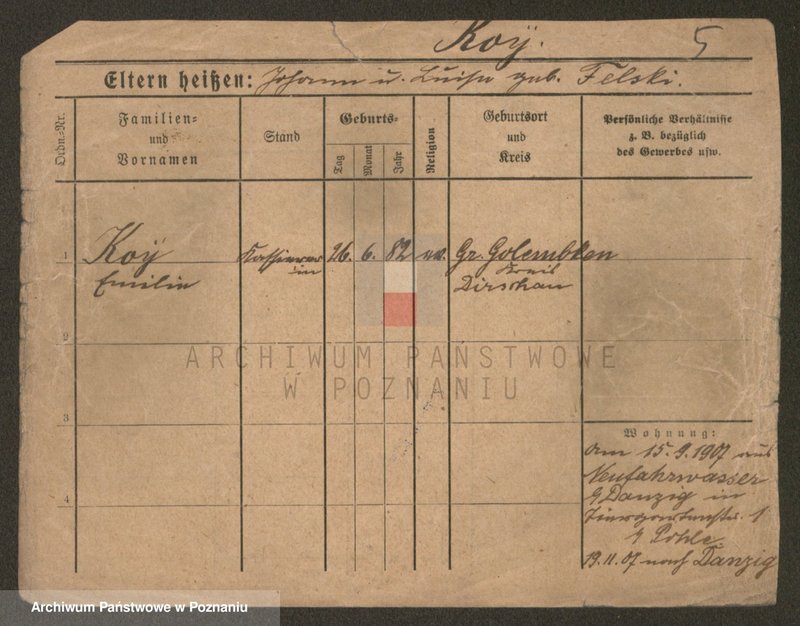 Koÿ. 5
Eltern heißen: Johann u. Luise geb. Felski.
Ordn.-Nr.
Familien-
und
Vornamen
Stand
Geburts-
Tag
Monat
Jahr
Religion
Geburtsort
und
Kreis
Persönliche Verhältnisse
z. B. bezüglich
des Gewerbes usw.
1 Koÿ Kassierer 26. 6. 82 ev. Gr. Golembken
in Kreis
Emilie Dirschau
2
ARCHIWUM PAŃSTWOWE
W POZNANIU
3
Wohnung:
am 15.9.1907 aus
Neufahrwasser
b/Danzig in
4 Tiergartenstr. 1
b/ Pohle
19.11.07 nach Danzig
Archiwum Państwowe w Poznaniu